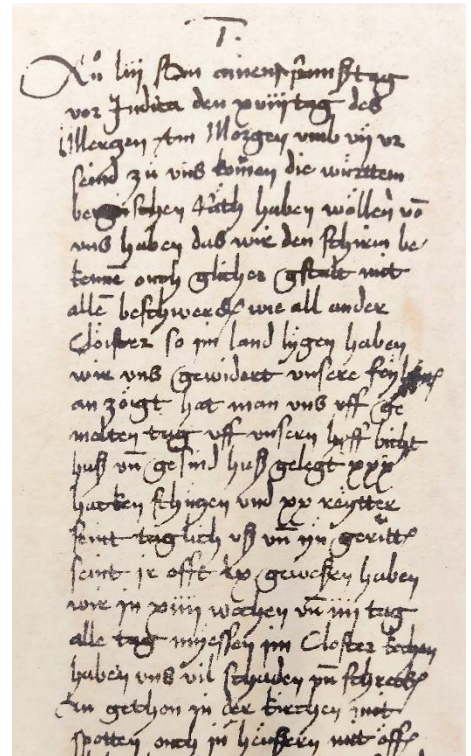 I.
Xů liij ston ainen samstag
vor Judica den xviij tag des
Mertzen Am Morgen vmb vij vr
seind zů vns komen die wirttem
bergischen Räth haben wöllen vō
vns haben das wir den schirm be
kennē ouch glicher gstalt mit
allē beschwerdē wie all ander
Clöster so jm land lygen haben
wir vns gewidert vnsere
an zöigt hat man vns vff ge
melten tag vff vnsern hoff bicht
huß vn̄ gesind huß gelegt xxx
hacken schützen vnd xx reytter
seint taglich vß vn̄ yn gerittē
seint jr offt lxx geweßen haben
wir in xviij wochen vn̄ iiij tag
alle tag miessen jm Closter kochen
haben vns vil schaden vn̄ schreckē
an gethon jn der kirchen mit
spotten ouch jn heüßern mit öff